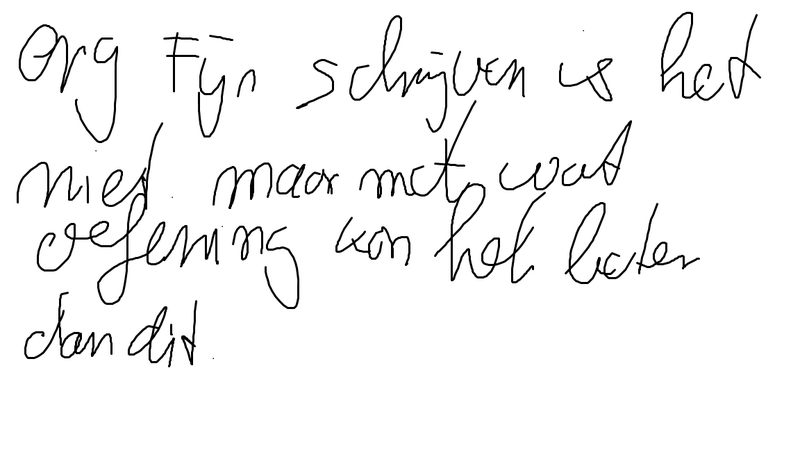 Erg Fijn schrijven is het
niet maar met wat
oefening kan het beter
dan dit.